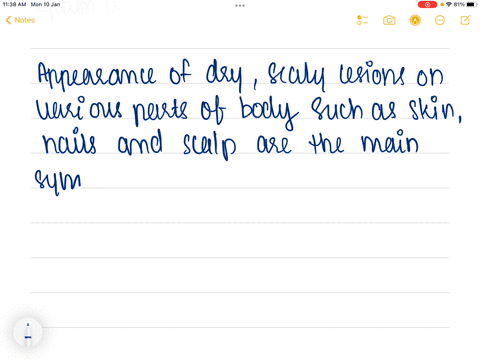 11:38 AM Mon 10 Jan
81%
Notes
Appearance of dry, scaly lesions on
various parts of body such as skin,
nails and scalp are the main
sym